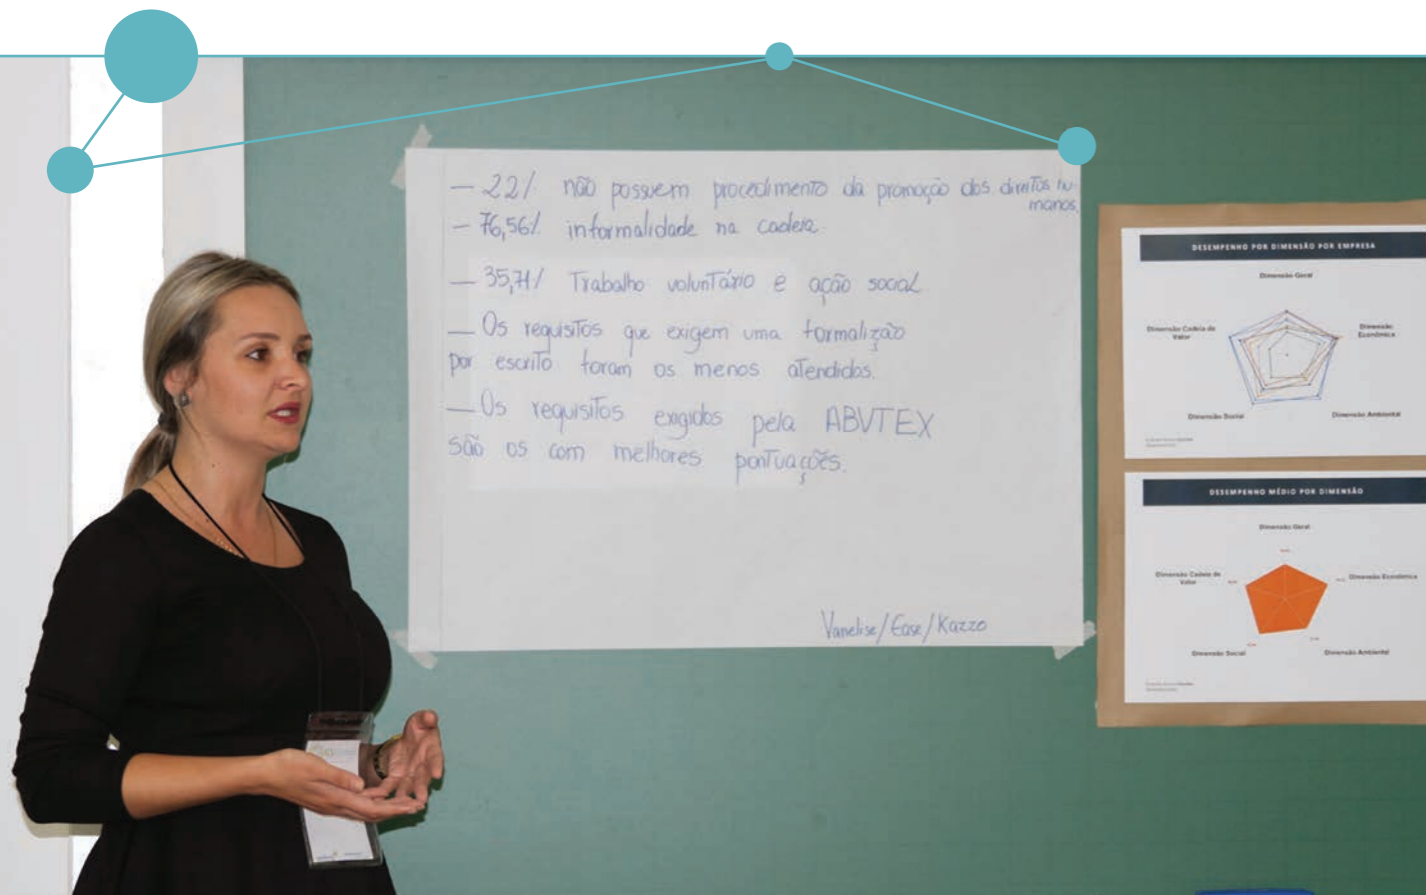 — 22% não possuem procedimento da promoção dos direitos hu-
manos.
— 76,56% informalidade na cadeia
— 35,71% Trabalho voluntário e ação social
— Os requisitos que exigem uma formalização
por escrito foram os menos atendidos.
— Os requisitos exigidos pela ABVTEX
são os com melhores pontuações.
Vanelise/Ease/Kazzo
DESEMPENHO POR DIMENSÃO POR EMPRESA
Dimensão Geral
Dimensão Cadeia de
Valor
Dimensão
Econômica
Dimensão Social
Dimensão Ambiental
DESEMPENHO MÉDIO POR DIMENSÃO
Dimensão Geral
Dimensão Cadeia de
Valor
Dimensão Econômica
Dimensão Social
Dimensão Ambiental